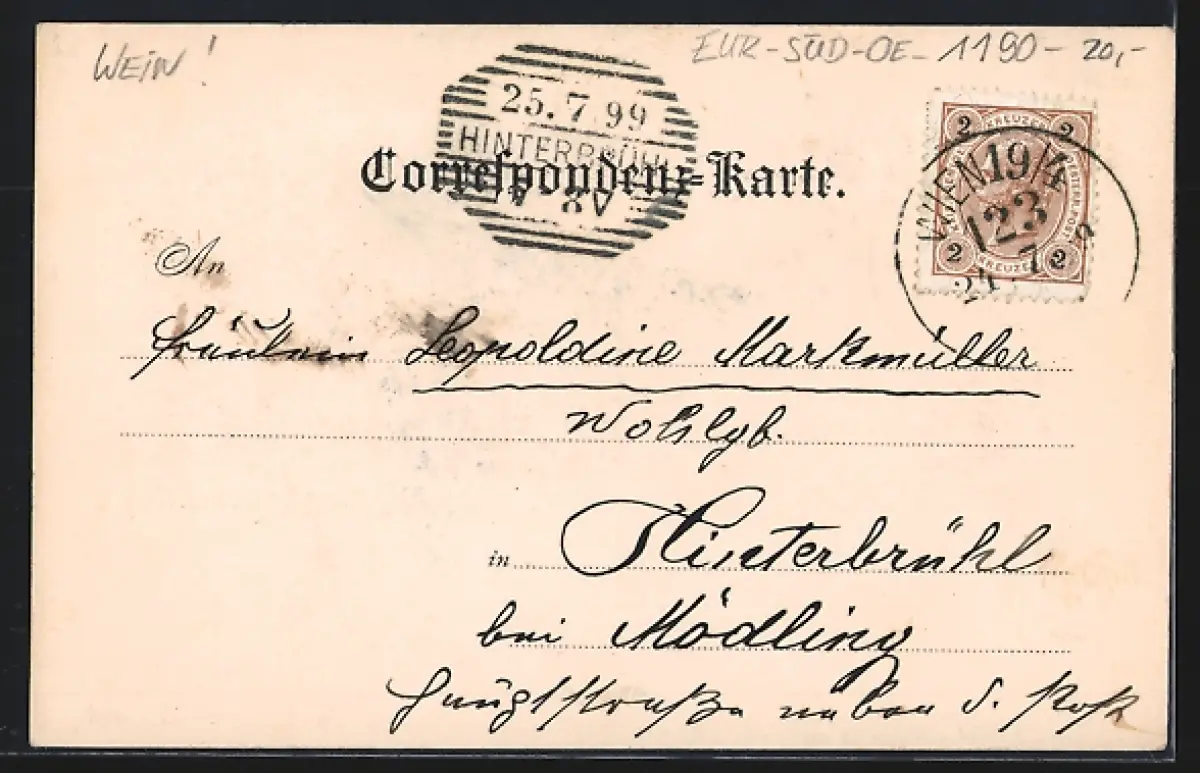 WEIN!
EUR-SÜD-OE-1190- 20,-
25.7.99
HINTERBRÜHL
Correspondenz-Karte.
2 KREUZER 2
WIEN 19/4
123
24. 7
2 KREUZER 2
An
Fräulein Leopoldine Markmüller
Wohlgb.
in Hinterbrühl
bei Mödling
Hauptstraße neben d. Post